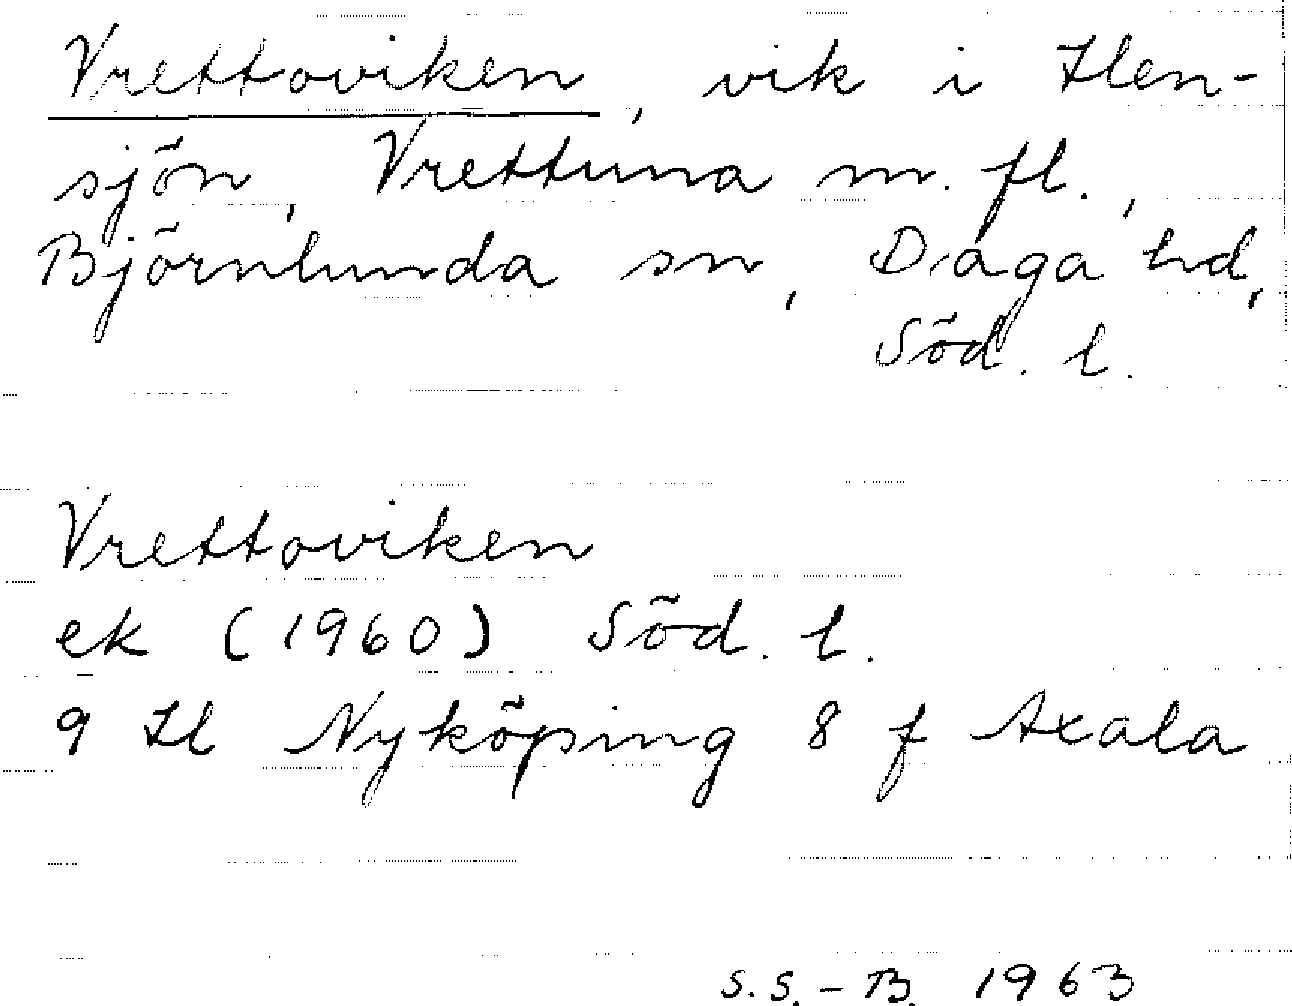 Vrettoviken, vik i Hen-
sjön, Vrettuna m. fl.,
Björnlunda sn, Daga hd,
Söd. l.
Vrettoviken
ek (1960) Söd. l.
9 H l Nyköping 8 f Axala
S.S.-B. 1963